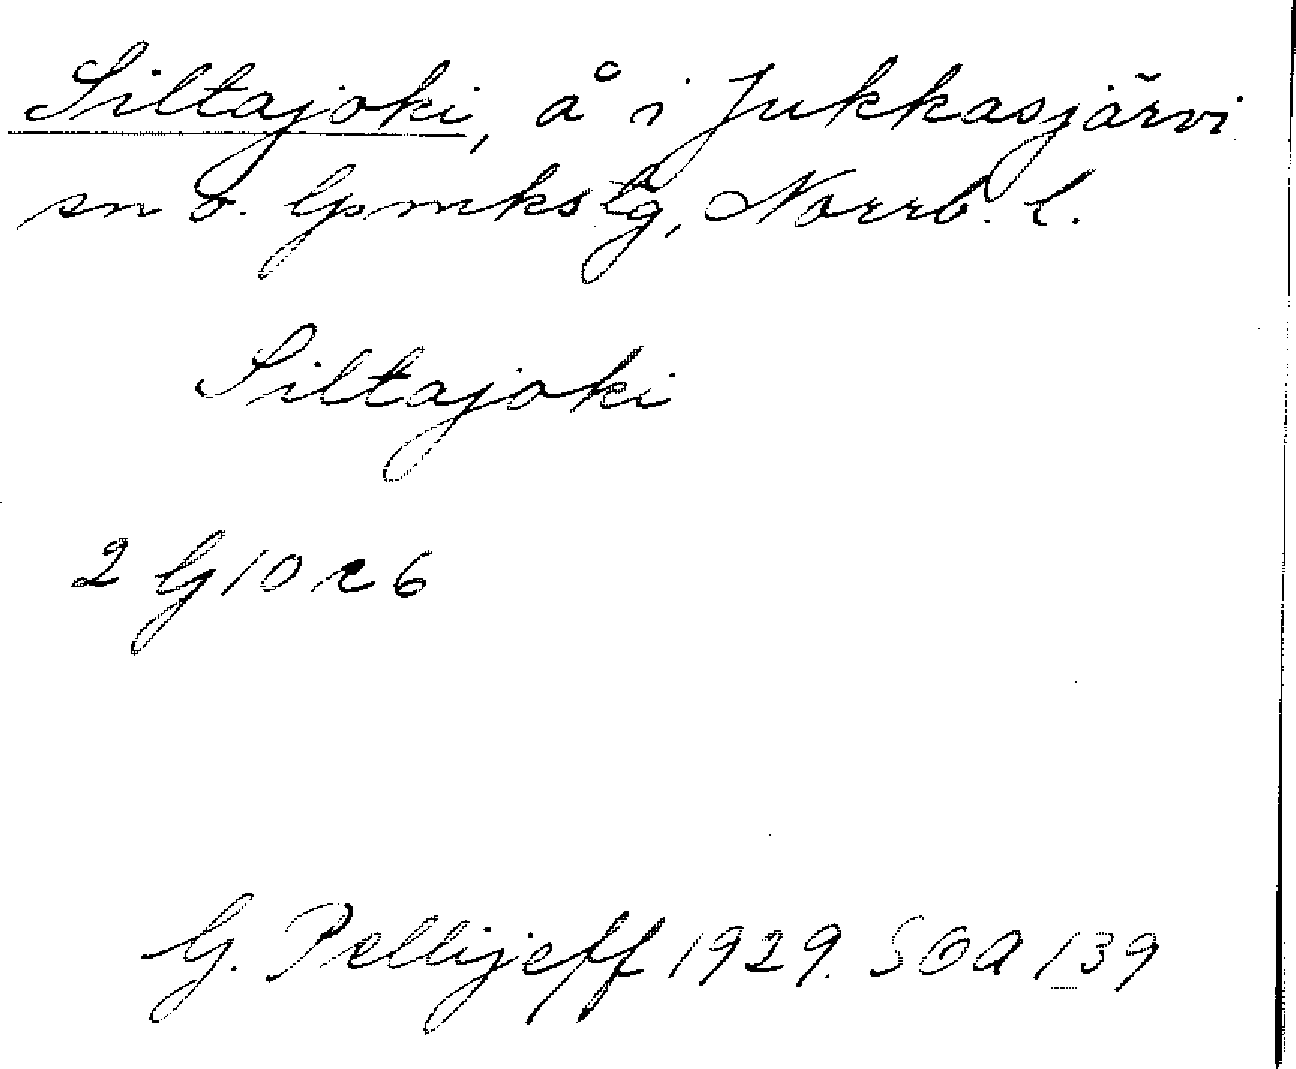 Siltajoki, å i Jukkasjärvi
sn o. lpmkslg, Norrb. l.
Siltajoki
2 G 10 c 6
G. Pellijeff 1929. SOA 139